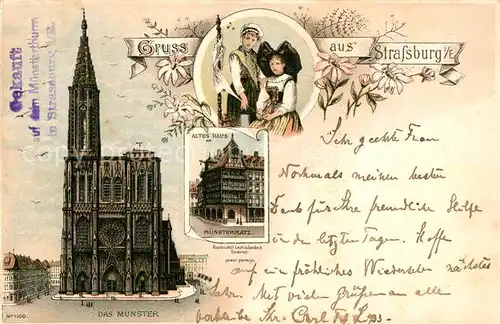 Gruss aus Strassburg i/E
Gekauft
auf dem Münsterthurm
in Strassburg i. E.
ALTES HAUS
AM
MÜNSTERPLATZ
DAS MÜNSTER
No 1100
Sehr geehrte Frau
Nochmals meinen besten
Dank für Ihre freundliche Hilfe
in den letzten Tagen. Hoffe
auf ein fröhliches Wiedersehen nächstes
Jahr. Mit vielen Grüßen an alle
verbleibe Ihr Carl